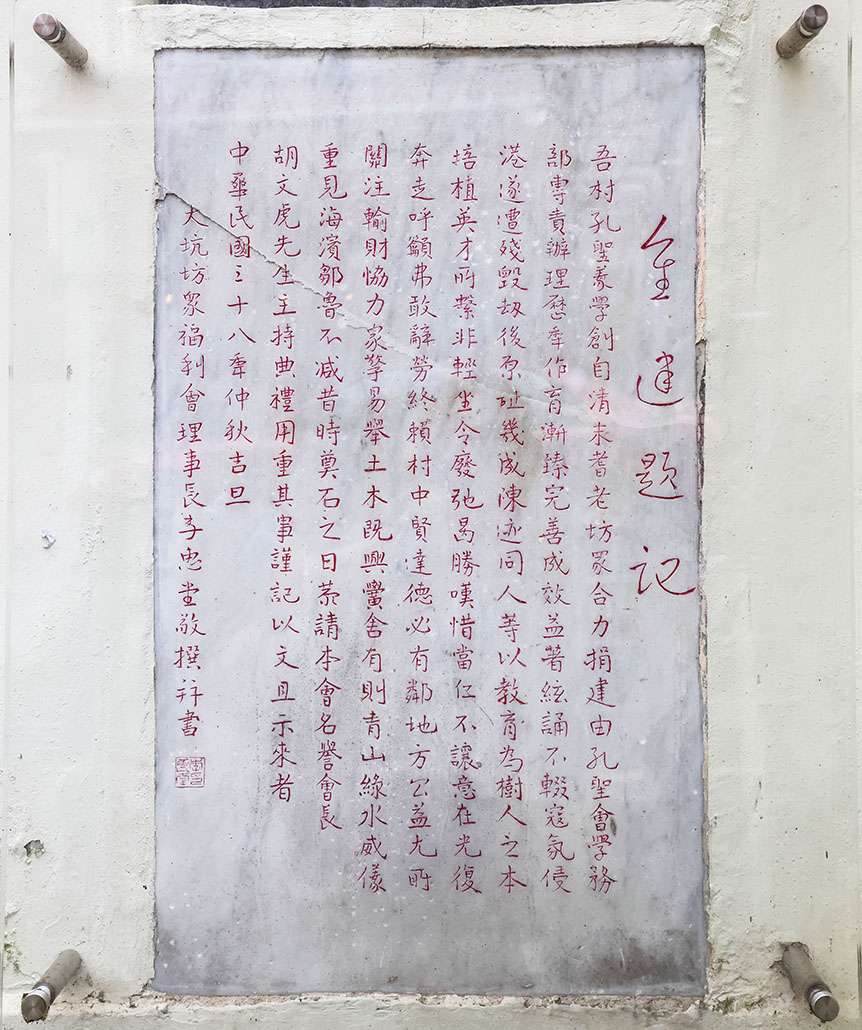 重建題記
吾村孔聖義學創自清末耆老坊眾合力捐建由孔聖會學務
部專責辦理歷年作育漸臻完善成效益著絃誦不輟寇氛侵
港遂遭殘毀劫後原址幾成陳迹同人等以教育為樹人之本
培植英才所繫非輕坐令廢弛曷勝嘆惜當仁不讓意在光復
奔走呼籲弗敢辭勞終賴村中賢達德必有鄰地方公益尤所
關注輸財恊力眾擎易舉土木既興黌舍有則青山綠水威儀
重見海濱鄒魯不減昔時奠石之日恭請本會名譽會長
胡文虎先生主持典禮用重其事謹記以文且示來者
中華民國三十八年仲秋吉旦
大坑坊眾福利會理事長李忠堂敬撰并書